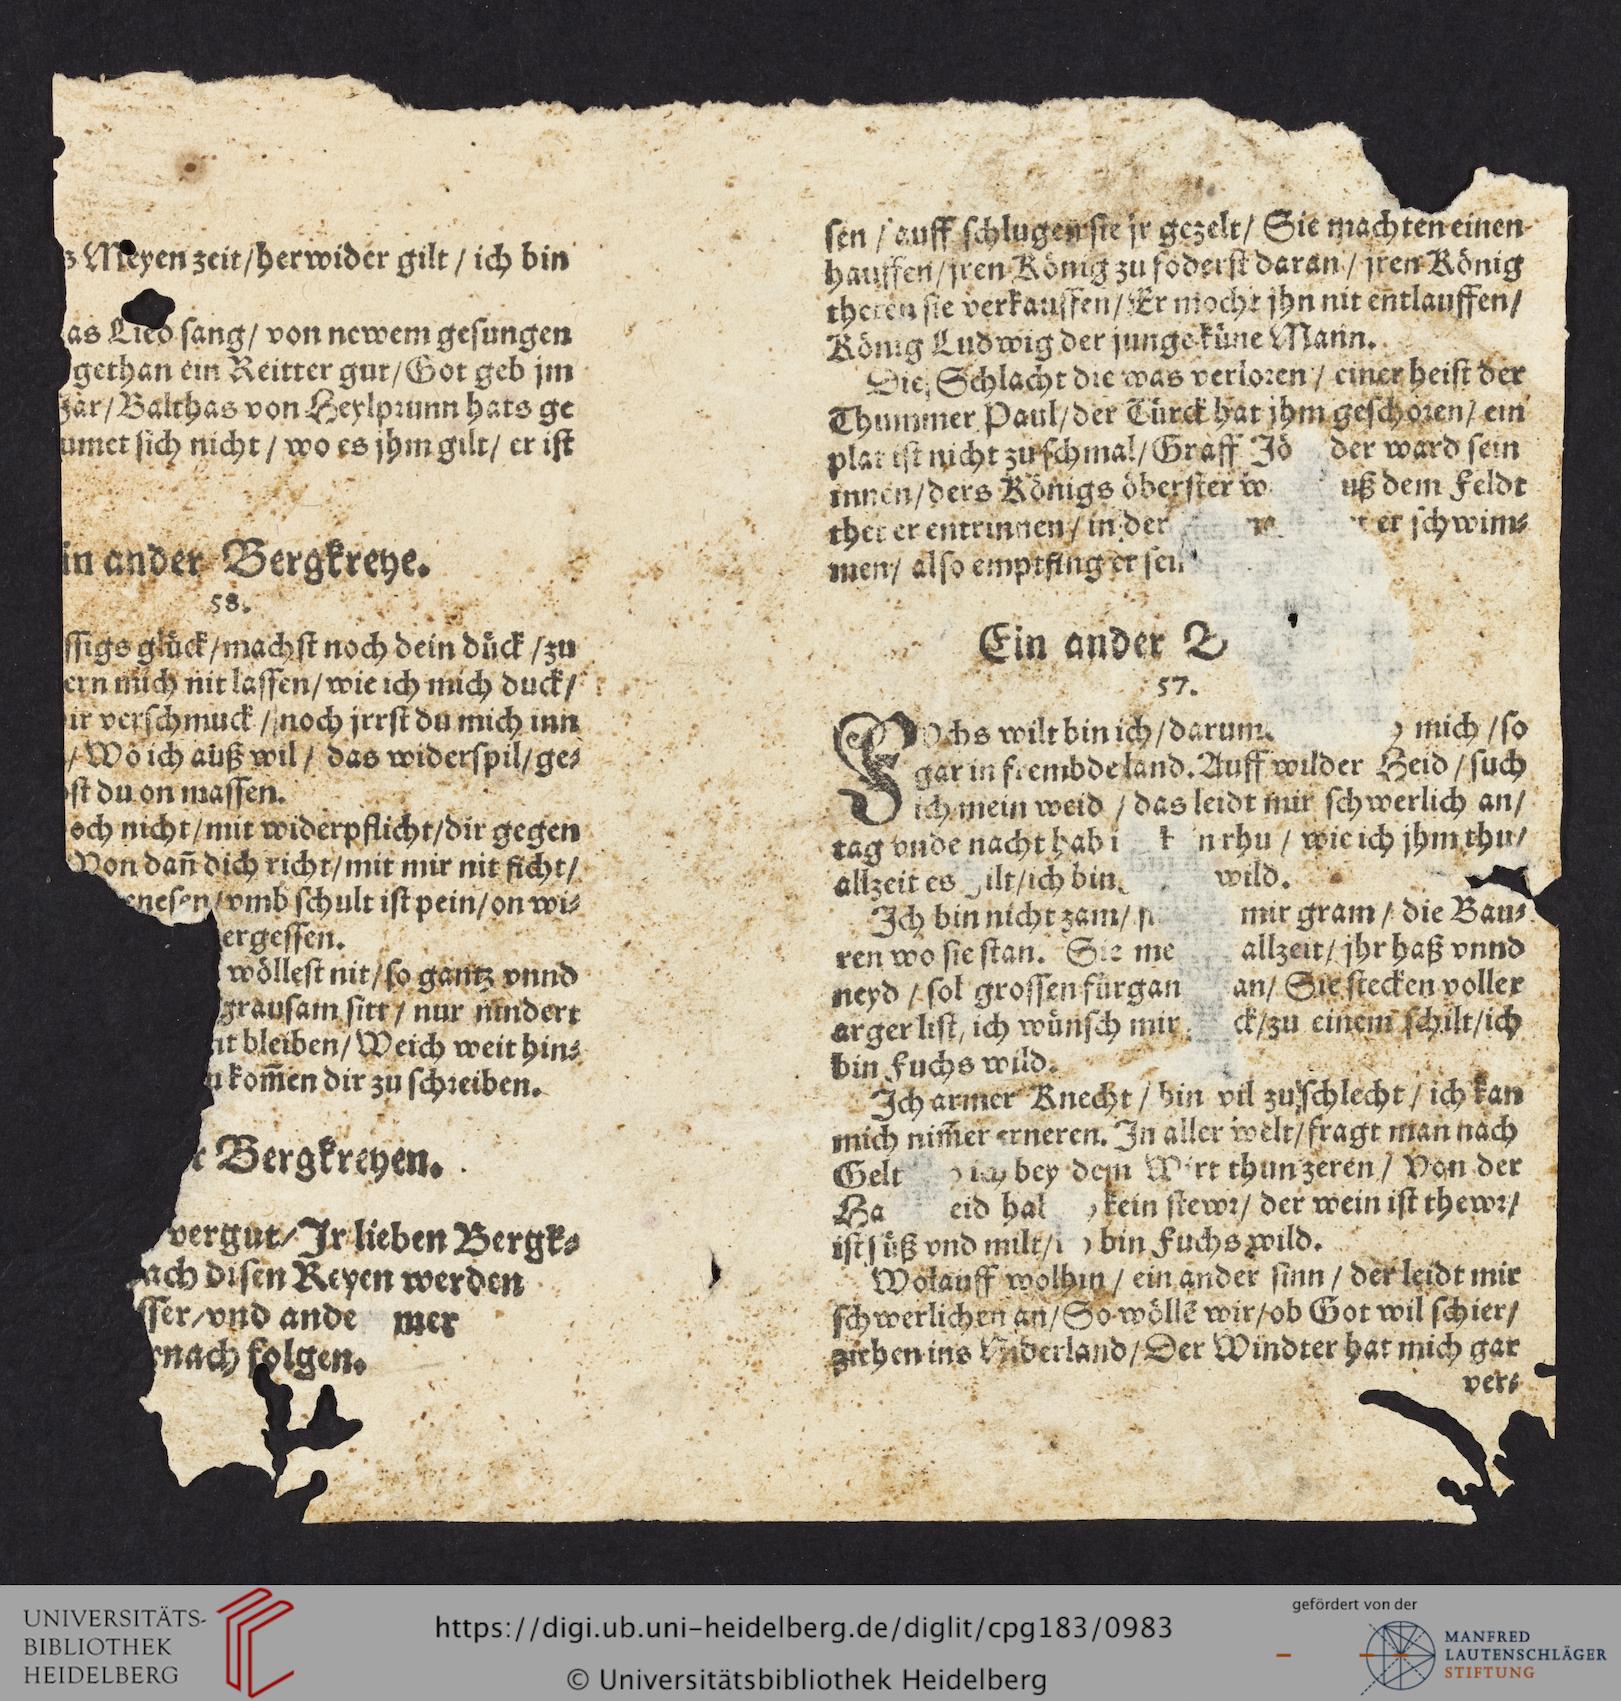 s Meyen zeit/herwider gilt / ich bin
as Lied sang/ von newem gesungen
gethan ein Reitter gut/Got geb jm
Jar/Balthas von Heylprunn hats ge
umet sich nicht / wo es jhm gilt/ er ist
in ander Bergkreye.
58.
ssigs glück/machst noch dein dück /zu
ern mich nit lassen/wie ich mich duck/
ir verschmuck /noch jrrst du mich inn
/Wo ich auß wil / das widerspil/ge⸗
st du on massen.
och nicht/mit widerpflicht/dir gegen
Von dañ dich richt/mit mir nit ficht/
enesen/vmb schult ist pein/on wi⸗
ergessen.
wöllest nit/so gantz vnnd
grausam sitt / nur nindert
it bleiben/Weich weit hin⸗
kom̄en dir zu schreiben.
Bergkreyen.
vergut/Jr lieben Bergk⸗
ach disen Reyen werden
sser/vnd ande mer
nach folgen.
sen / auff schlugen sie jr gezelt/ Sie machten einen
hauffen/jren König zu foderst daran / jren König
theten sie verkauffen/Er mocht jhn nit entlauffen/
König Ludwig der junge küne Mann.
Die Schlacht die was verloren / einer heist der
Thummer Paul/der Türck hat jhm geschoren/ ein
plat ist nicht zu schmal/Graff Jö der ward sein
innen/ders Königs öberster w uß dem Feldt
thet er entrinnen / in der er schwim⸗
men/ also empfing er sein
Ein ander B
57.
FOchs wilt bin ich/darum mich /so
gar in frembde land. Auff wilder Heid / such
ich mein weid / das leidt mir schwerlich an/
tag vnde nacht hab i k n rhu / wie ich jhm thu/
allzeit es gilt/ich bin wild.
Ich bin nicht zam/ mir gram / die Bau⸗
ren wo sie stan. Sie me allzeit/ jhr haß vnnd
neyd / sol grossen fürgan an/ Sie stecken voller
arger list, ich wünsch mir ck/zu einem schilt/ich
bin Fuchs wild.
Ich armer Knecht / bin vil zu schlecht / ich kan
mich nim̄er erneren. In aller welt/fragt man nach
Gelt ich bey dem Wirt thun zeren / Von der
Ha eid hab kein stewr/ der wein ist thewr/
ist süß vnd milt/ bin Fuchs wild.
Wolauff wolhin / ein ander sinn / der leidt mir
schwerlichen an/So wöllē wir/ob Got wil schier/
ziehen ins Niderland/Der Windter hat mich gar
ver⸗
UNIVERSITÄTS-
BIBLIOTHEK
HEIDELBERG
https://digi.ub.uni-heidelberg.de/diglit/cpg183/0983
© Universitätsbibliothek Heidelberg
gefördert von der
MANFRED
LAUTENSCHLÄGER
STIFTUNG